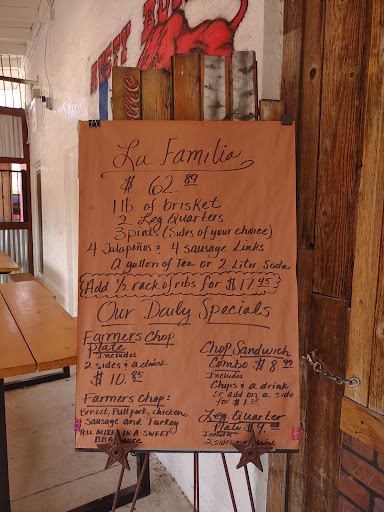 La Familia
$ 62.89
1 lb of brisket
2 Leg Quarters
3 pints (sides of your choice)
4 Jalapeños & 4 sausage Links
A gallon of Tea or 2 Liter Soda
Add 1/2 rack of ribs for $17.45
Our Daily Specials
Farmers Chop
Plate
Includes
2 sides & a drink
$10.85
Farmers Chop:
Brisket, Pull pork, chicken,
Sausage and Turkey
All mixed in a sweet
BBQ sauce
Chop Sandwich
Combo $8.99
Includes
Chips & a drink
or add on a side
for $1.35
Leg Quarter
Plate $9.00
Includes
2 sides & a drink